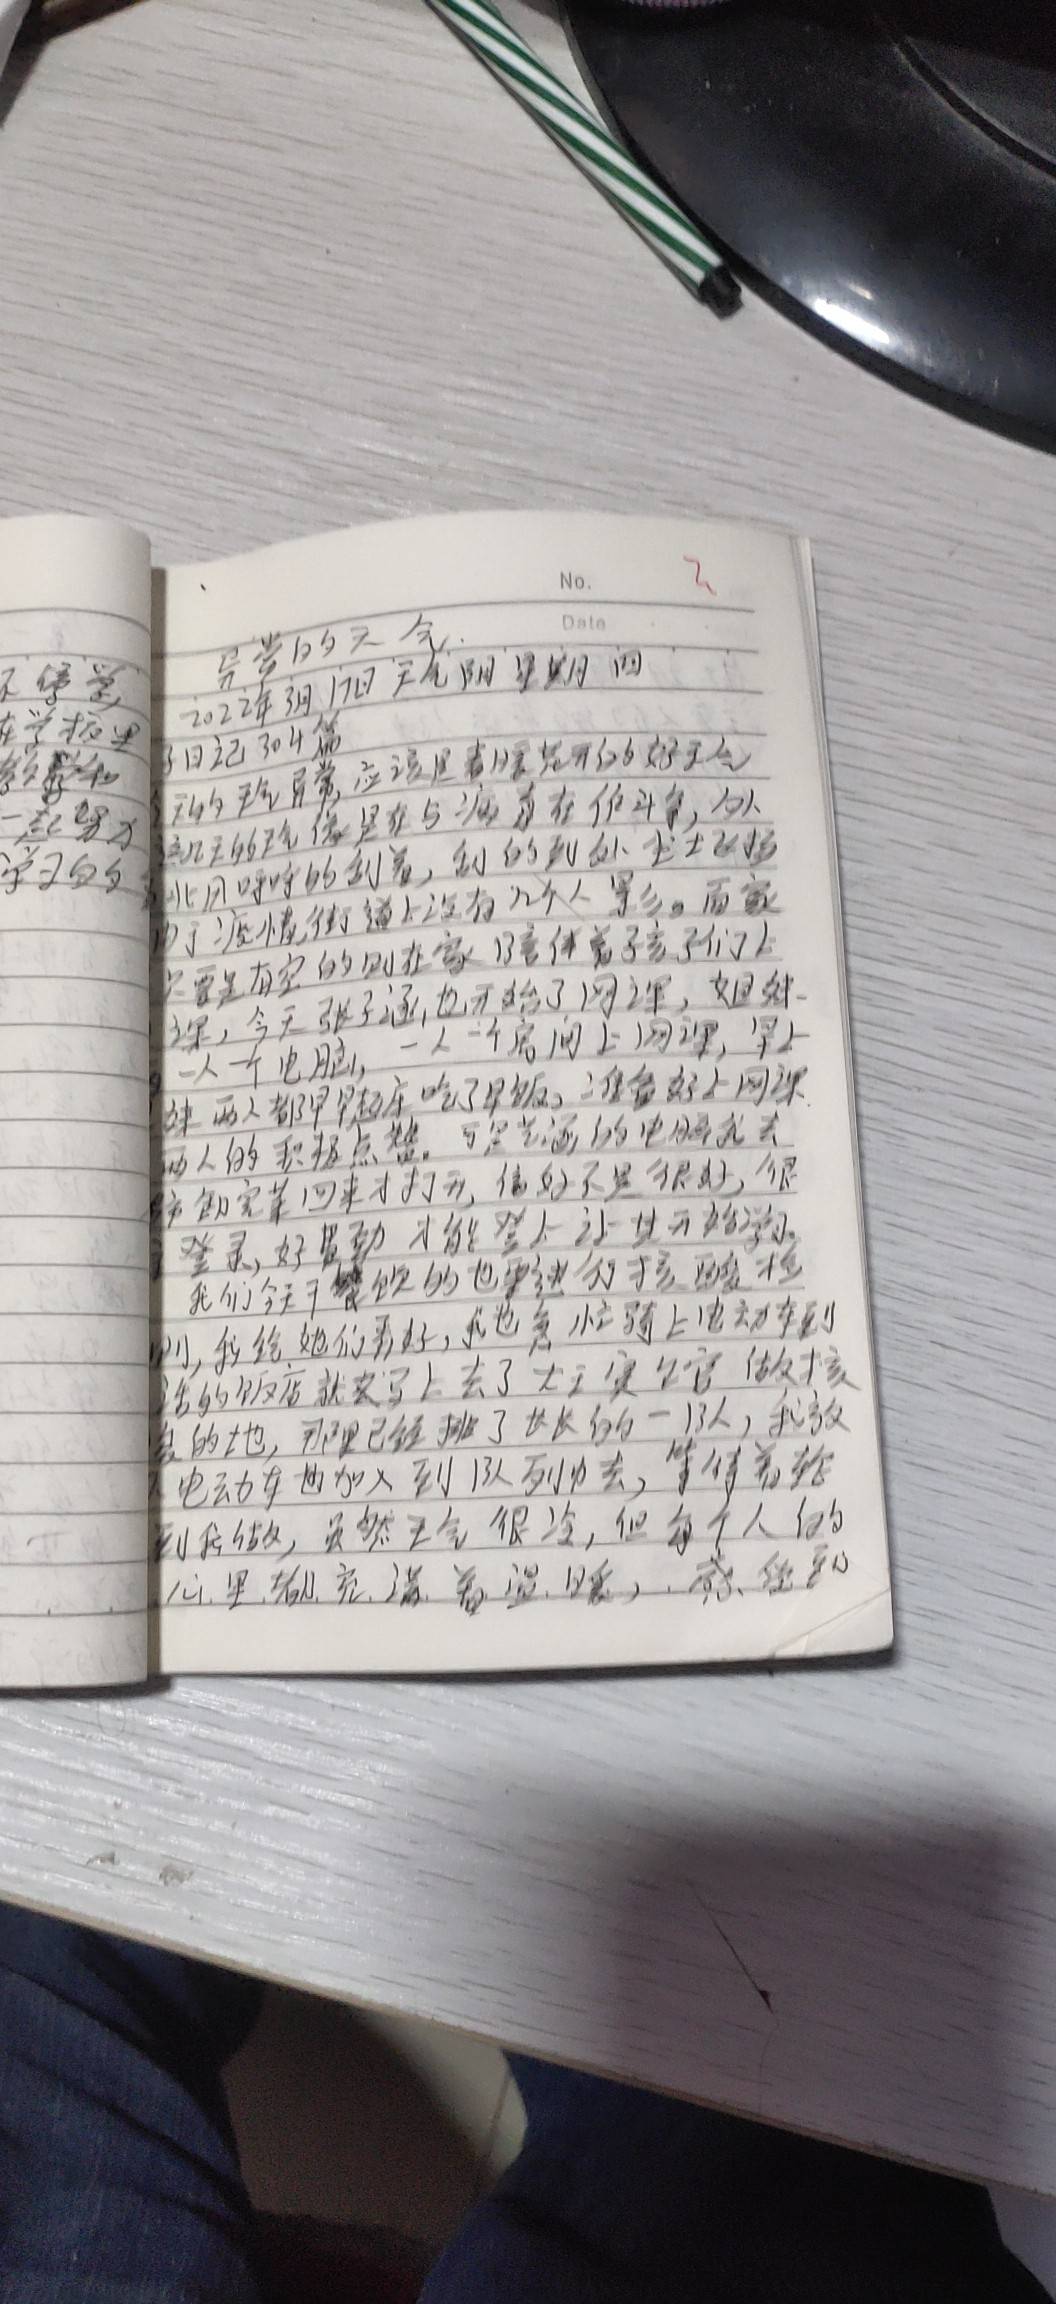 不停学
在学校里
一起努力
学习的
No. 2
Date
异常的天气
2022年3月17日 天气阴 星期四
日记304篇
天的天气异常,应该是春暖花开的好天气
这几天的天气像是在与病毒在作斗争,
北风呼呼的刮着,刮的到处尘土飞扬
由于疫情,街道上没有几个人影。而家
只要是有空的则在家陪伴着孩子们上
课,今天张子涵也开始了网课,姐妹
一人一个电脑,一人一个房间上网课,早上
妹两人都早早起床吃了早饭,准备好上网课
两人的积极点赞。可是子涵的电脑我去
完菜回来才打开,信好不是很好,很
登录,好 才能登上让其开始学习
我们今天干餐饮的也要继续核酸检
测,我给她们弄好,我也急忙骑上电动车到
的饭店就去马上去了大王寨公官做核
的地,那里已经排了长长的一队,我放
电动车也加入到队列中去,等待着轮
到我做,虽然天气很冷,但每个人的
心里都充满着温暖,感经到